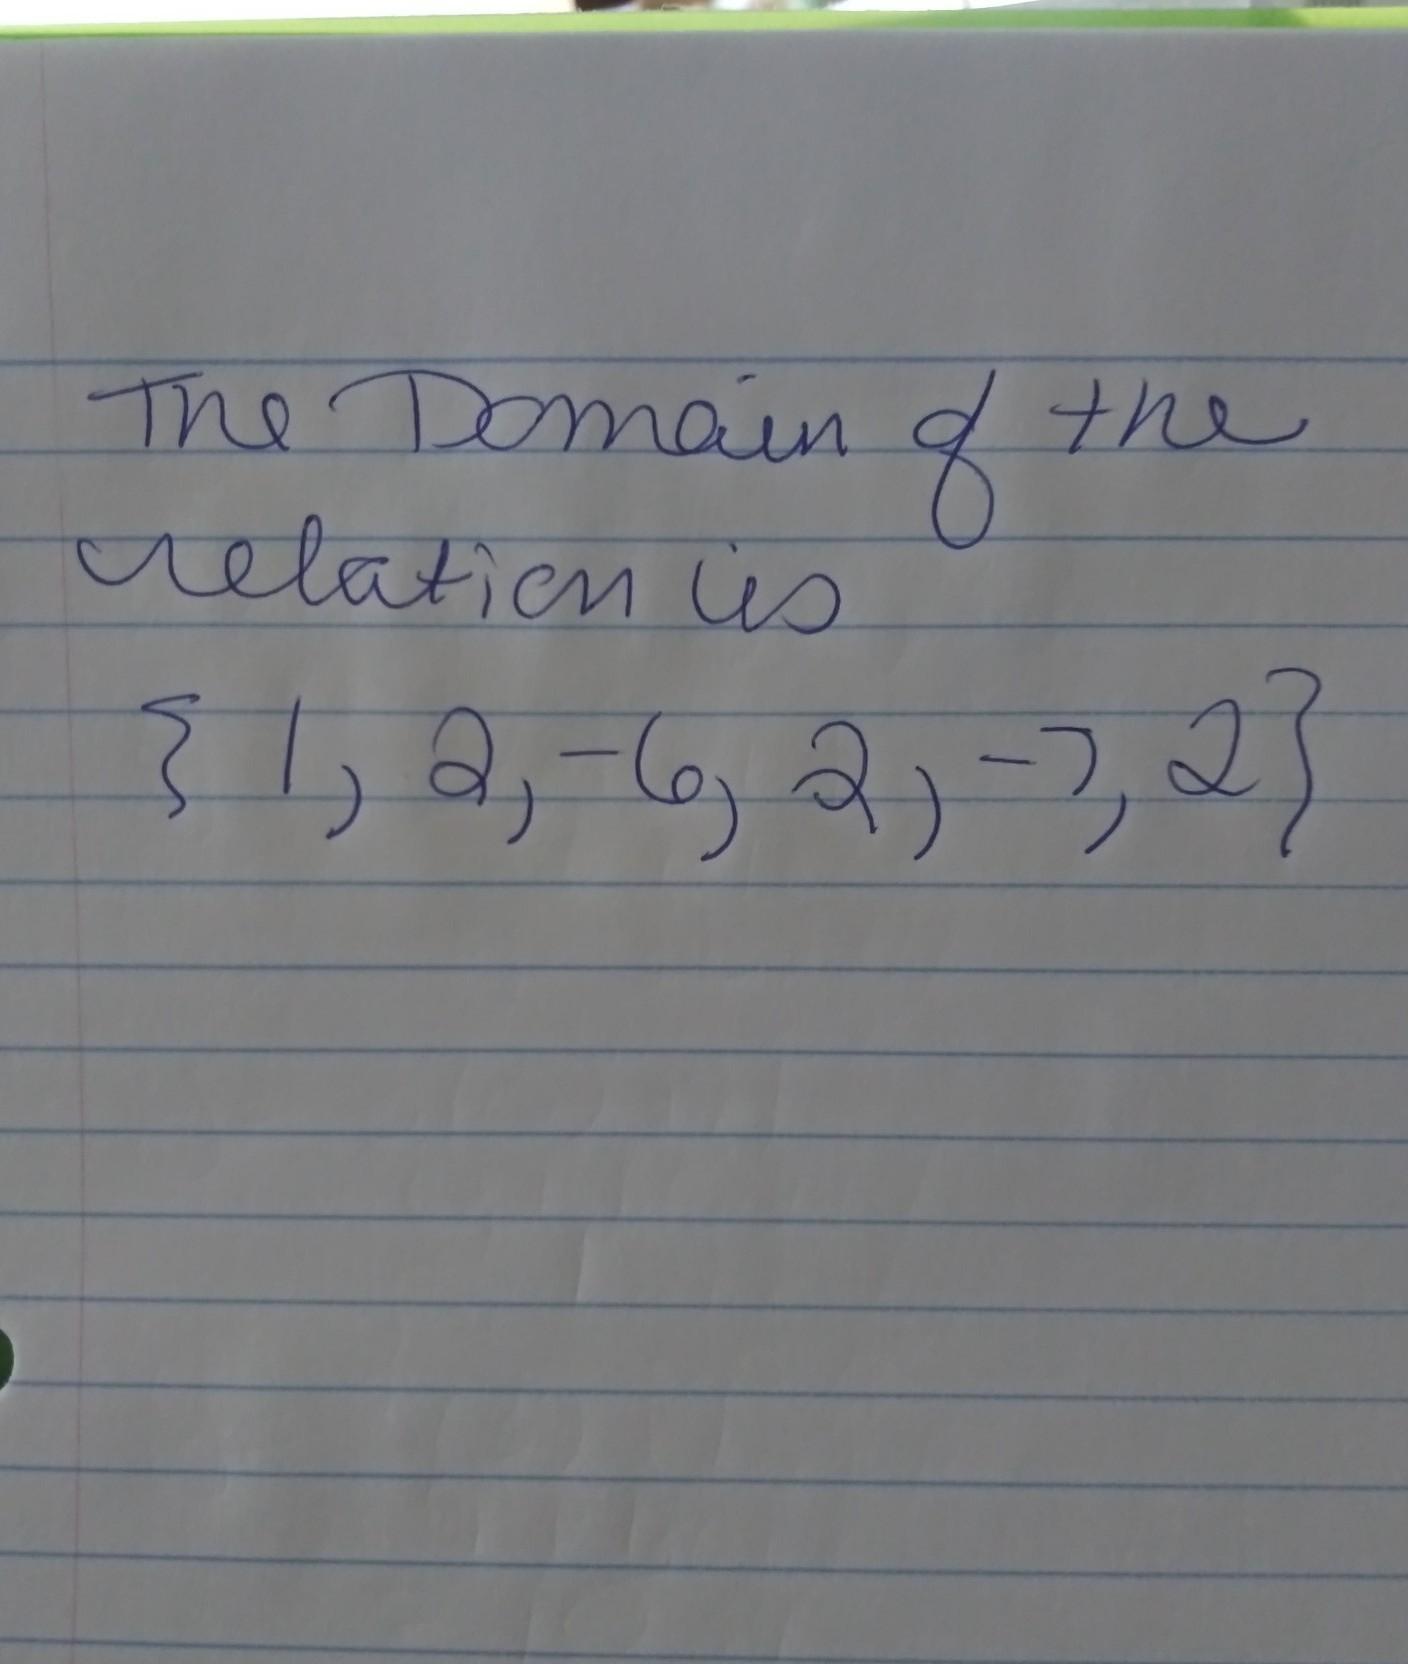 The Domain of the
relation is
{ 1, 2, -6, 2, -7, 2}